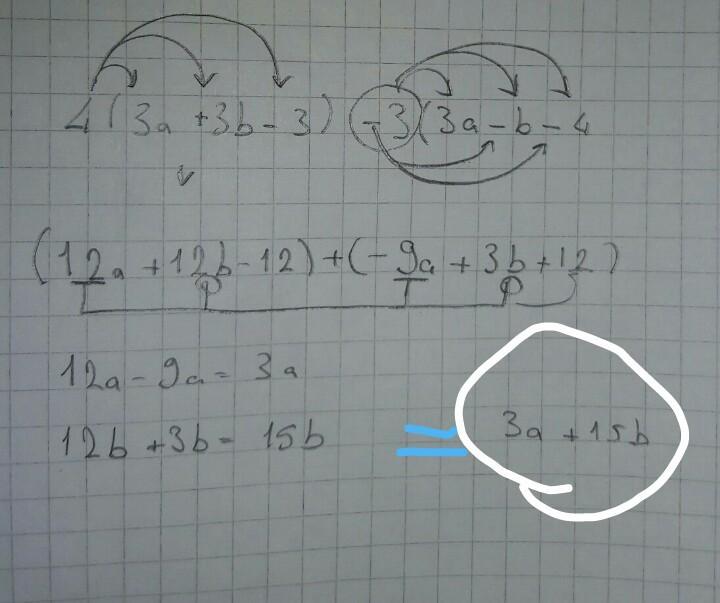 4(3a+3b-3)-3(3a-b-4
(12a+12b-12)+(-9a+3b+12)
12a-9a=3a
12b+3b=15b = 3a+15b